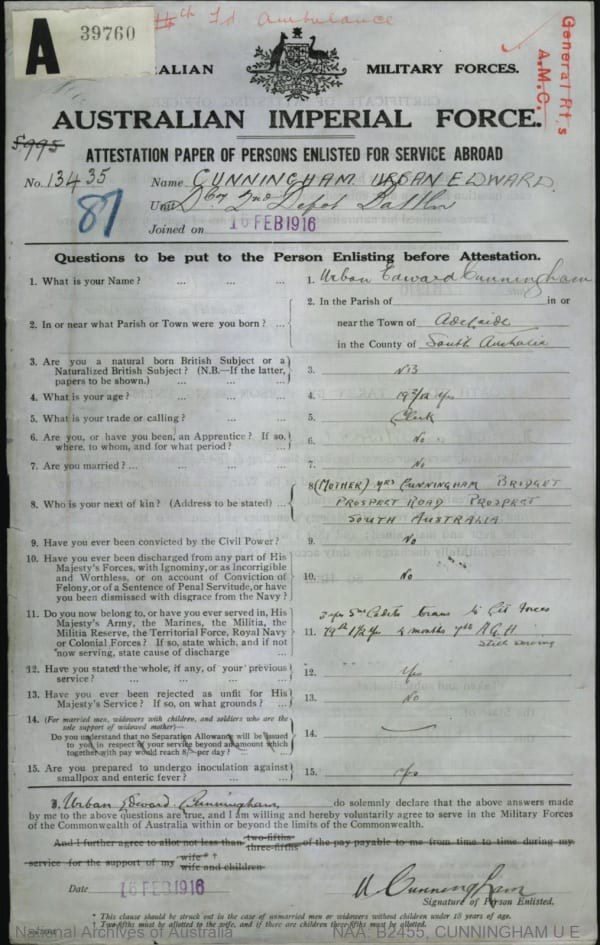 A 39760
Fd Ambulance
General Rf.s
A.M.C.
AUSTRALIAN MILITARY FORCES.
AUSTRALIAN IMPERIAL FORCE.
5995
ATTESTATION PAPER OF PERSONS ENLISTED FOR SERVICE ABROAD
No. 13435 Name CUNNINGHAM URBAN EDWARD
87
Unit D Coy 2nd Depot Battln
Joined on 16 FEB 1916
Questions to be put to the Person Enlisting before Attestation.
1. What is your Name? ... ... ... 1. Urban Edward Cunningham
2. In or near what Parish or Town were you born? ... 2. In the Parish of in or
near the Town of Adelaide
in the County of South Australia
3. Are you a natural born British Subject or a
Naturalized British Subject? (N.B.—If the latter,
papers to be shown.) ... ... ... 3. NB
4. What is your age? ... ... ... 4. 19 3/12 yrs
5. What is your trade or calling? ... ... 5. Clerk
6. Are you, or have you been, an Apprentice? If so,
where, to whom, and for what period? ... 6. No
7. Are you married? ... ... ... 7. No
8. Who is your next of kin? (Address to be stated) ... 8 (MOTHER) MRS CUNNINGHAM BRIDGET
PROSPECT ROAD PROSPECT
SOUTH AUSTRALIA
9. Have you ever been convicted by the Civil Power? 9. No
10. Have you ever been discharged from any part of His
Majesty's Forces, with Ignominy, or as Incorrigible
and Worthless, or on account of Conviction of
Felony, or of a Sentence of Penal Servitude, or have
you been dismissed with disgrace from the Navy? 10. No
11. Do you now belong to, or have you ever served in, His
Majesty's Army, the Marines, the Militia, the
Militia Reserve, the Territorial Force, Royal Navy
or Colonial Forces? If so, state which, and if not
now serving, state cause of discharge ... 11 2 yrs Snr Cadets trans to Cit Forces
79th 1 1/2 yrs 2 months 7th A.G.H.
still serving
12. Have you stated the whole, if any, of your previous
service? ... ... ... ... 12. Yes
13. Have you ever been rejected as unfit for His
Majesty's Service? If so, on what grounds? ... 13. No
14. (For married men, widowers with children, and soldiers who are the
sole support of widowed mother)—
Do you understand that no Separation Allowance will be issued
to you in respect of your service beyond an amount which
together with pay would reach 8/- per day? ... 14.
15. Are you prepared to undergo inoculation against
smallpox and enteric fever? ... ... 15. Yes
I, Urban Edward Cunningham, do solemnly declare that the above answers made
by me to the above questions are true, and I am willing and hereby voluntarily agree to serve in the Military Forces
of the Commonwealth of Australia within or beyond the limits of the Commonwealth.
And I further agree to allot not less than two-fifths three-fifths of the pay payable to me from time to time during my
service for the support of my wife * † wife and children
Date 16 FEB 1916 U Cunningham
Signature of Person Enlisted.
* This clause should be struck out in the case of unmarried men or widowers without children under 18 years of age.
† Two-fifths must be allotted to the wife, and if there are children three-fifths must be allotted.
National Archives of Australia NAA: B2455, CUNNINGHAM U E